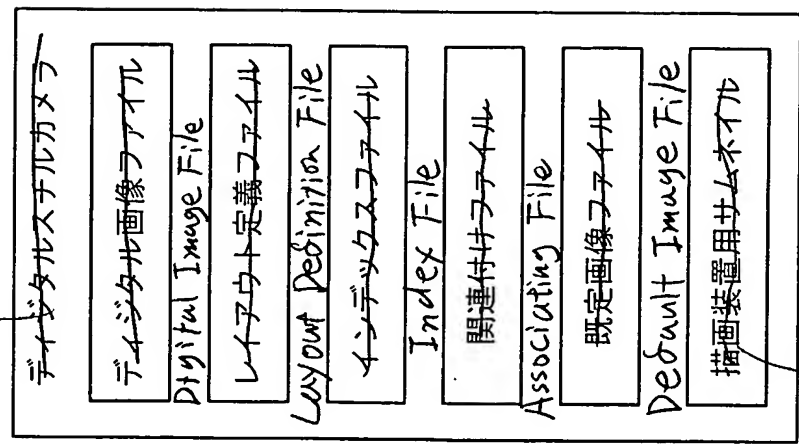 ディジタルスチルカメラ
ディジタル画像ファイル
Digital Image File
レイアウト定義ファイル
Layout Definition File
インデックスファイル
Index File
関連付けファイル
Associating File
既定画像ファイル
Default Image File
描画装置用サムネイル